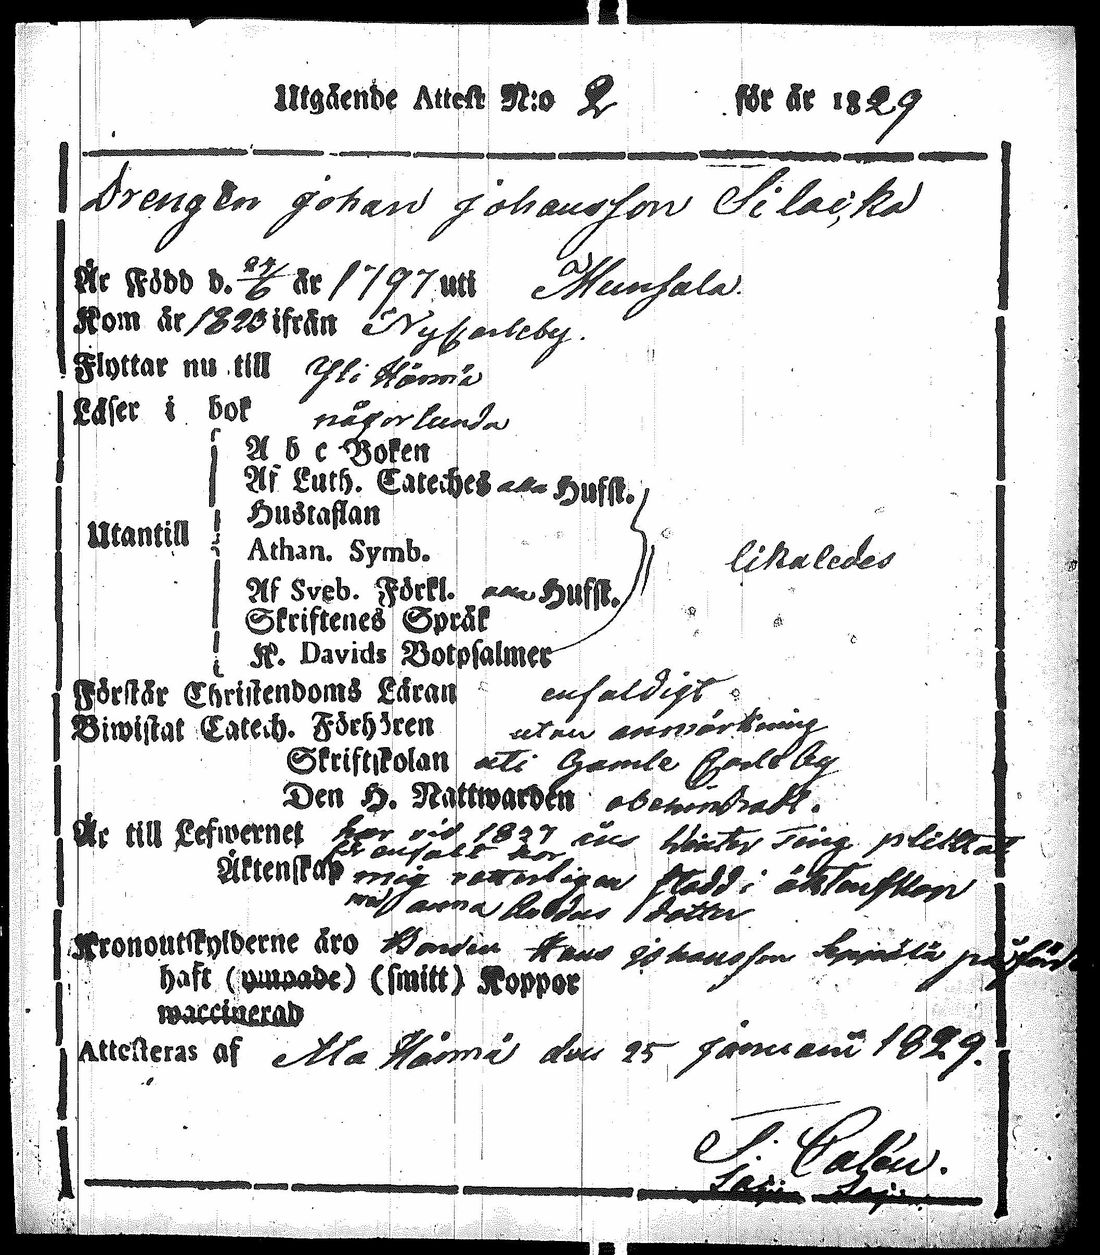 Utgående Attest N:o 2 för år 1829
Drengen Johan Johansson Silacka
Är Född d. 24/6 år 1797 uti Munsala
Kom år 1823 ifrån Nycarleby.
Flyttar nu till Yli Härmä
Läser i bok någorlunda
A b c Boken
Af Luth. Cateches alla Hufst.
Hustaflan
Utantill
Athan. Symb.
likaledes
Af Sveb. Förkl. Hufst.
Skriftenes Språk
K. Davids Botpsalmer
Förstår Christendoms Läran enfaldigt
Biwistat Catech. Förhören utan anmärkning
Skriftskolan uti Gamle Carleby
Den H. Nattwarden obehindradt.
Är till Lefwernet har vid 1827 års Winter Ting pliktat
för enfalt hor
Äktenskap mig vetterligen stadd i äktenskap
med Anna dotter
Kronoutskylderne äro Bonden Hans Johansson Seppälä påförde
haft (ympade) (smitt) Koppor
waccinerad
Attesteras af Ala Härmä den 25 Januarii 1829.